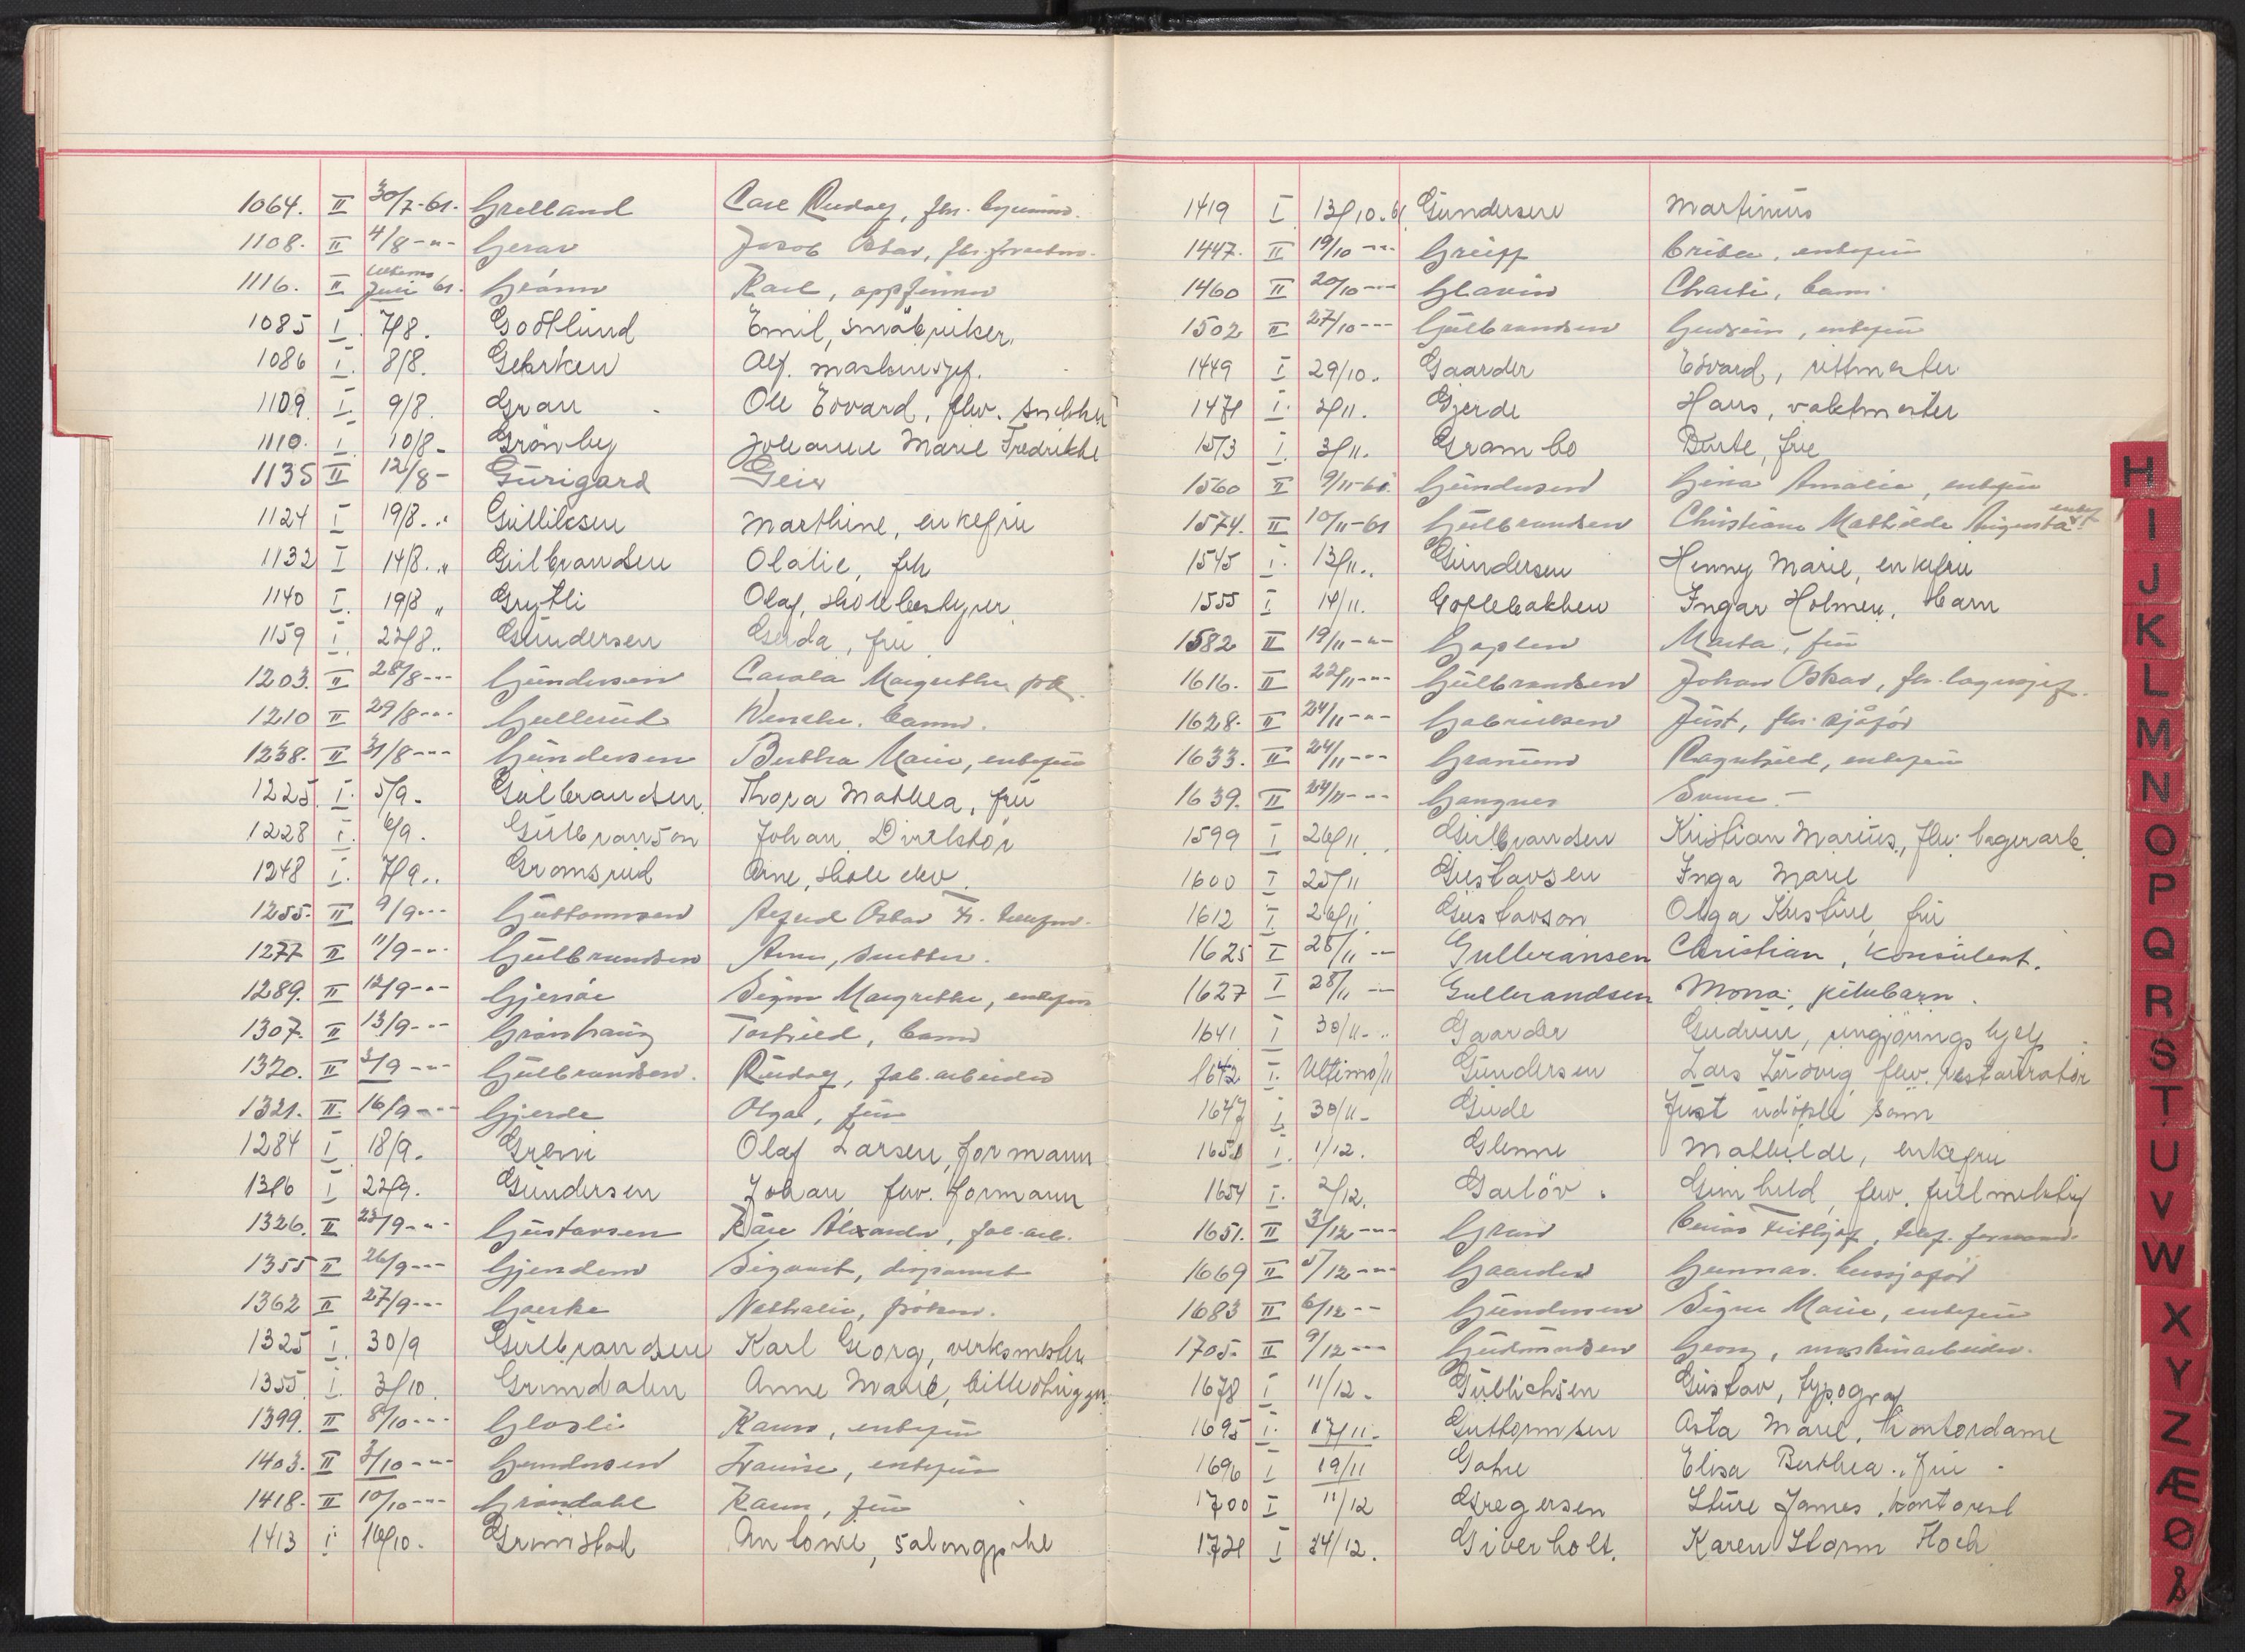 1064. II 30/7-61. Grelland Carl Rudolf, fhv.
1108. II 4/8-"- Oskar, fhv.
1116. II Ultimo Juli 61. Karl, oppfinner
1085 I. 7/8. Godtlund Emil, småbruker.
1086 I. 8/8. Gehrken Alf. maskinsjef.
1109. I. 9/8. Gran Ole Edvard, fhv. snekker
1110. I. 10/8- Grönbey Johanne Marie Fredrikke
1135 II 12/8- Gurigard Geir
1124 I 19/8.." Gulliksen Marthine, enkefru
1132 I 14/8.." Gulbrandsen Olalie, frk
1140 I. 19/8 " Grytli Olaf, skolebestyrer.
1159 I. 22/8.. Gundersen Gerda, fru.
1203. II 28/8--- Gundersen Carola Margrethe
1210 II 29/8--- Gullerud Wenche. barn.
1238. II 31/8--- Gundersen Bertha Marie, enkefru
1225. I. 5/9- Gulbrandsen Thora Mathea, fru
1228 I. 6/9. Gulbranson Johan. Direktör
1248 I. 7/9.. Gromsrud Arne, skole elev.
1255. II 9/9--- Guttormsen Oskar
1277 II 11/9--- Gulbrandsen Arne, snekker.
1289. II 12/9--- Signe Margrethe, enkefru
1307. II 13/9--- Grönhaug Torhild, barn
1320. II 3/9 --- Gulbrandsen. Rudolf, fab. arbeider
1321. II. 16/9--- Gjerde Olga, fru
1284 I 18/9. Greni Olaf Larsen, formann
1316 I 22/9. Gundersen Johan fhv. formann
1326. II 23/9--- Gustavsen Kåre Alexander, fab. arb.
1355 II 26/9--- Gjendem Sigurd, disponent
1362 II 27/9--- Gaerke Nathalie, fröken.
1325 I. 30/9 Gulbrandsen Karl Georg, verksmester
1355 I. 3/10. Grimdalen Anne Marie,
1399. II 8/10--- Glosli Karen, enkefru
1403. II 3/10--- Gundersen enkefru
1418. II 10/10--- Gröndahl Karen, fru
1413 I 16/10. Grimstad Antonie,
1419 I 13/10.61 Gundersen Martinus
1447. II 19/10--- Greiff enkefru
1460 II 20/10--- Glavin barn.
1502 II 27/10--- Gulbrandsen enkefru
1449 I 29/10. Gaarder Edvard, rittmester
1471 I. 2/11. Gjerde Hans, vaktmester
1513 I. 3/11. Grambo fru
1560 II 9/11-61. Gundersen Gina Amalie, enkefru
1574. II 10/11-61 Gulbrandsen Christiane Mathilde Augusta
1545 I. 13/11.. Gundersen Henny Marie, enkefru
1555 I 14/11. Gollebakken Ingar Holmen, barn
1582 II 19/11-"- Marta, fru
1616. II 22/11--- Gulbrandsen Johan Oskar, fhv. lagersjef.
1628. II 24/11-"- Gabrielsen Just, fhv. sjåför
1633. II 24/11--- Ragnhild, enkefru
1639. II 24/11--- Gangnes
1599 I 26/11. Gulbrandsen Kristian Marius, fhv. lagerarb.
1600 I 25/11 Gustavsen Inga Marie
1612 I 26/11 Gustavson Olga Kristine, fru
1625 I 28/11 -- Gulbransen Christian, konsulent.
1627 I 28/11 -- Gulbrandsen Mona, pikebarn.
1641. I 30/11-.. Gaarder Gudrun, rengjörings hjelp
1642 I. Ultimo/11 Gundersen Lars Ludvig fhv. restauratör
1647 I. 30/11- Gude Just udöpte sönn
1650 I. 1/12. Glenne Mathilde, enkefru
1654 I. 2/12. Garlöv. Gunhild, fhv. fullmektig
1651. II 3/12--- Gran telef. formann.
1669 II 5/12--- Gaarder Gunnar.
1683 II 6/12-- Gundersen Signe Marie, enkefru
1705. II 9/12--- Gudmundsen Georg, maskinarbeider.
1678 I 11/12. Gullichsen Gustav, typograf
1695 I. 17/11. Guttormsen Asta Marie, kontordame
1696 I 19/11 Elisa Berthea., fru
1700 I 11/12 Gregersen Sture James, kontorist
1721 I 24/12. Giverholt. Karen Storm Hoch
H
I
J
K
L
M
N
O
P
Q
R
S
T
U
V
W
X
Y
Z
Æ
Ø
Å